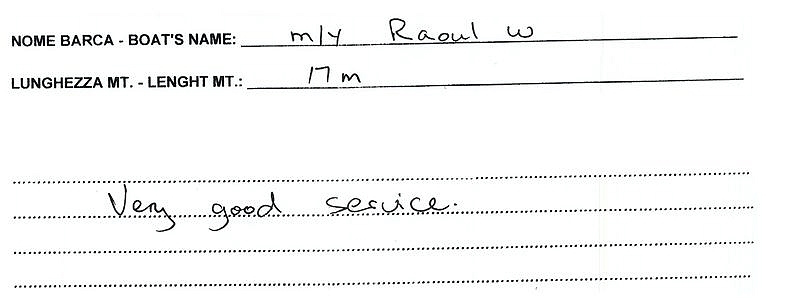 NOME BARCA - BOAT'S NAME: m/y Raoul W
LUNGHEZZA MT. - LENGHT MT.: 17 m
Very good service.